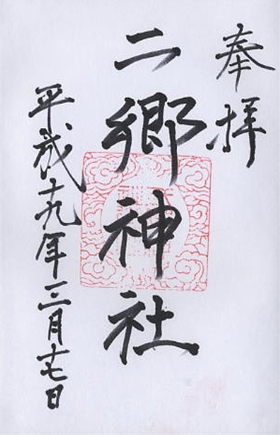 奉拝
二郷神社
平成十九年三月十七日